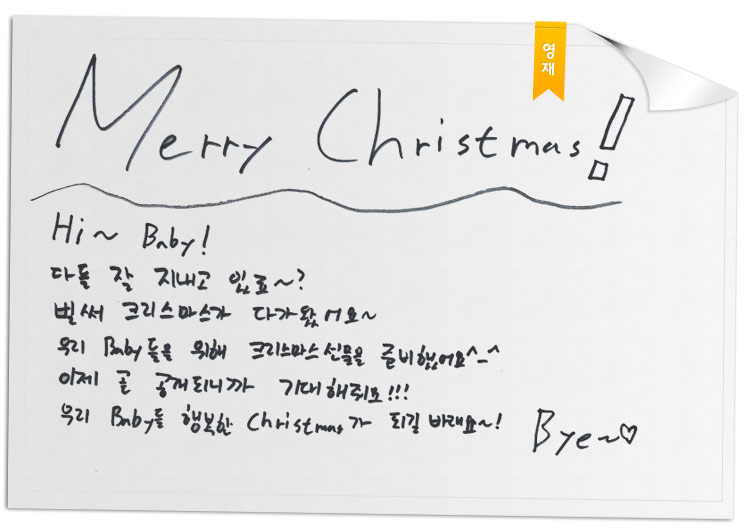 영재
Merry Christmas!
Hi~ Baby!
다들 잘 지내고 있죠~?
벌써 크리스마스가 다가왔어요~
우리 Baby들을 위해 크리스마스 선물을 준비했어요^-^
이제 곧 공개되니까 기대해줘요!!!
우리 Baby들 행복한 Christmas가 되길 바래요~!
Bye~♡